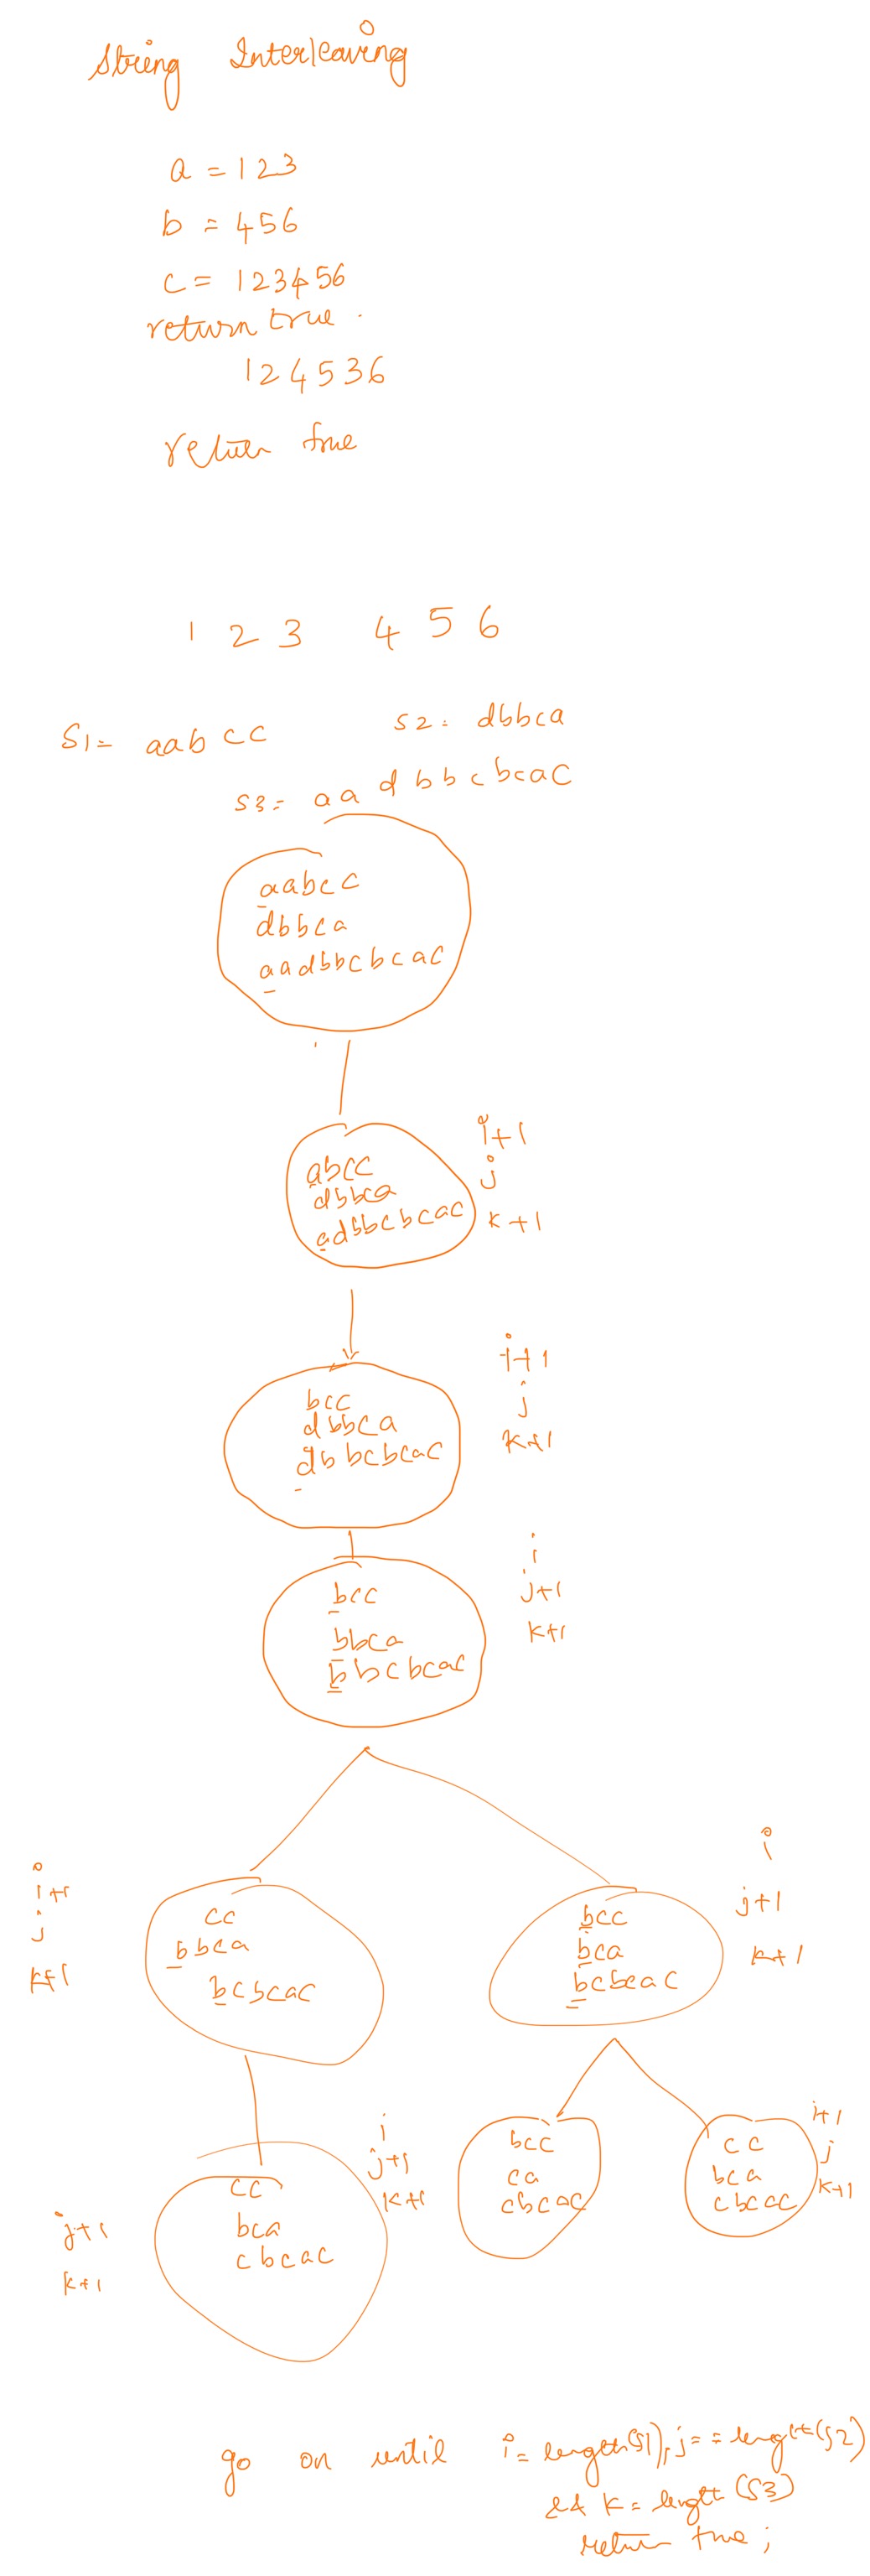 String Interleaving
a = 123
b = 456
c = 123456
return true.
124536
return true
1 2 3 4 5 6
S1= aabcc s2= dbbca
s3= aadbbcbcac
aabcc
dbbca
aadbbcbcac
i+1
abcc
j
dbbca
adbbcbcac
k+1
i+1
bcc
j
dbbca
k+1
dbbcbcac
i
bcc
j+1
bbca
k+1
bbcbcac
i
i+1
cc
bcc
j+1
j
bbca
bca
k+1
k+1
bcbcac
bcbcac
i
i+1
j+1
bcc
cc
j
cc
k+1
ca
bca
k+1
j+1
bca
cbcac
cbcac
cbcac
k+1
go on until i= length(s1), j== length(s2)
&& k= length(s3)
return true;